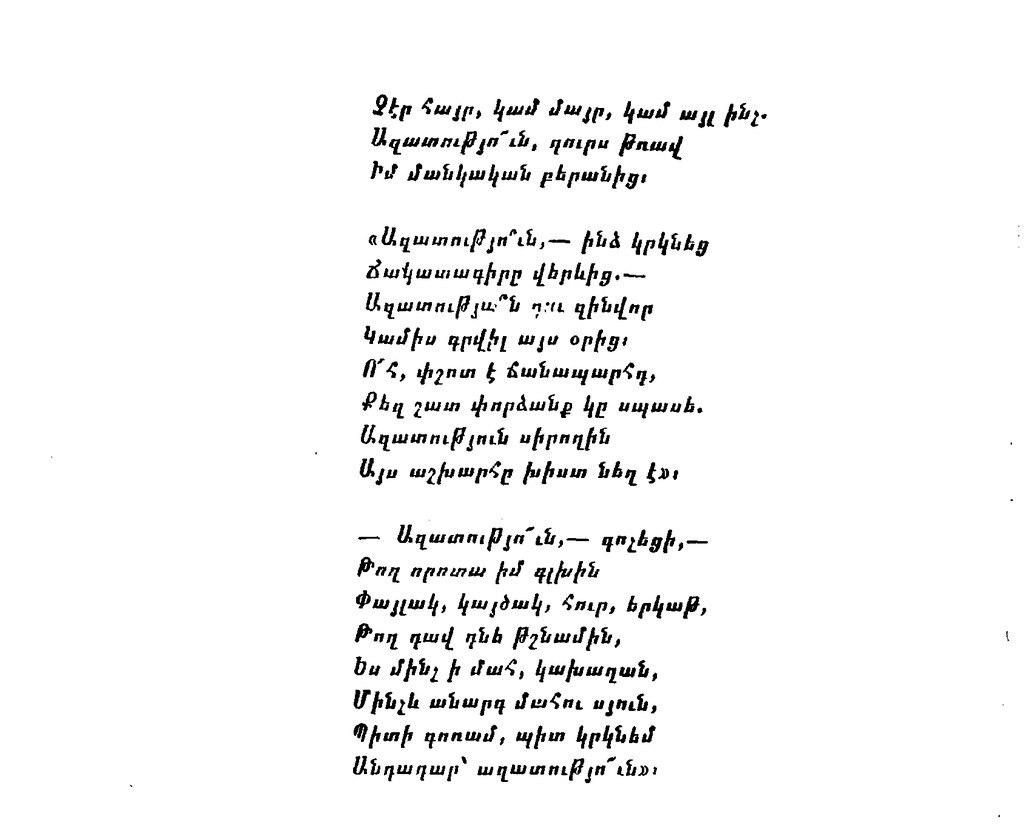 Չէր հայր, կամ մայր, կամ այլ ինչ.
Ազատությո՜ւն, դուրս թռավ
Իմ մանկական բերանից։
«Ազատությո՞ւն,— ինձ կրկնեց
Ճակատագիրը վերևից.—
Ազատությա՞ն զինվոր
Կամիս գրվիլ այս օրից։
Ո՜հ, փշոտ է ճանապարհդ,
Քեզ շատ փորձանք կը սպասե.
Ազատություն սիրողին
Այս աշխարհը խիստ նեղ է»։
— Ազատությո՜ւն,— գոչեցի,—
Թող որոտա իմ գլխին
Փայլակ, կայծակ, հուր, երկաթ,
Թող դավ դնե թշնամին,
Ես մինչ ի մահ, կախաղան,
Մինչև անարգ մահու սյուն,
Պիտի գոռամ, պիտ կրկնեմ
Անդադար՝ ազատությո՜ւն»։